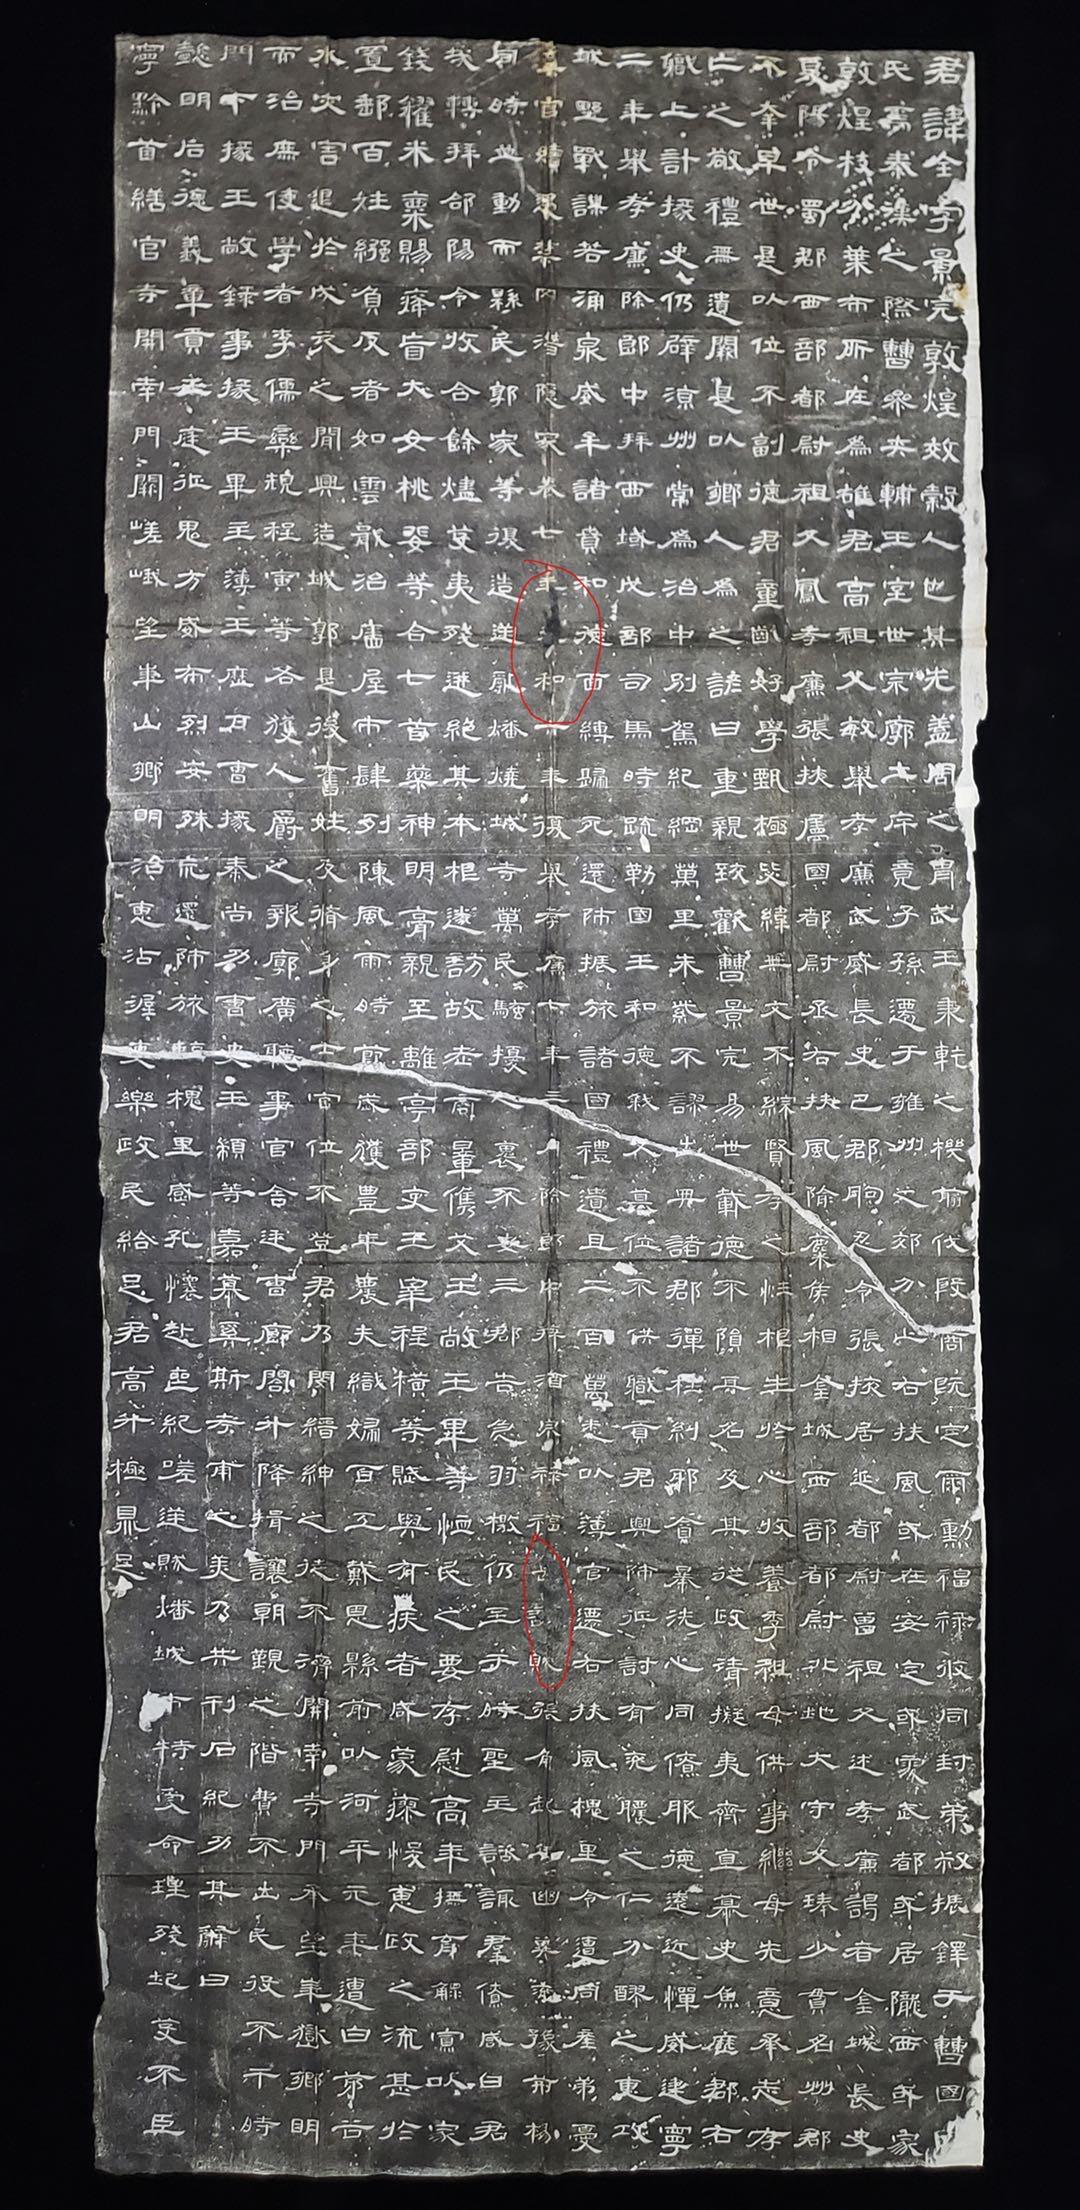 君諱全字景完敦煌效穀人也其先蓋周之胄武王秉乾之機翦伐殷商既定爾勳福祿攸同封弟叔振鐸于曹國因
氏焉秦漢之際曹參夾輔王室世宗廓土斥竟子孫遷于雍州之郊分止右扶風或在安定或處武都或居隴西或家
敦煌枝分葉布所在為雄君高祖父敏舉孝廉武威長史巴郡朐忍令張掖居延都尉曾祖父述孝廉謁者金城長史
夏陽令蜀郡西部都尉祖父鳳孝廉張掖屬國都尉丞右扶風隃麋侯相金城西部都尉北地大守父琫少貫名州郡
不幸早世是以位不副德君童齔好學甄極毖緯無文不綜賢孝之性根生於心收養季祖母供事繼母先意承志存
亡之敬禮無遺闕是以鄉人為之諺曰重親致歡曹景完易世載德不隕其名及其從政清擬夷齊直慕史魚歷郡右
職上計掾史仍辟涼州常為治中別駕紀綱萬里朱紫不謬出典諸郡彈枉糾邪貪暴洗心同僚服德遠近憚威建寧
二年舉孝廉除郎中拜西域戊部司馬時疏勒國王和德弒父篡位不供職貢君興師征討有兗膿之仁分醪之惠攻
城野戰謀若涌泉威牟諸賁和德面縛歸死還師振旅諸國禮遺且二百萬悉以薄官遷右扶風槐里令遭同產弟憂
棄官續遇禁冈潛隱家巷七年光和六年復舉孝廉七年三月除郎中拜酒泉祿福長訞賊張角起兵幽冀兗豫荊楊
同時並動而縣民郭家等復造逆亂燔燒城寺萬民騷擾人褱不安三郡告急羽檄仍至于時聖主諮諏群僚咸曰君
哉轉拜郃陽令收合餘燼芟夷殘迸絕其本根遂訪故老商量儁艾王敞王畢等恤民之要存慰高年撫育鰥寡以家
錢糴米粟賜癃盲大女桃婓等合七首藥神明膏親至離亭部吏王宰程橫等賦與有疾者咸蒙瘳悛惠政之流甚於
置郵百姓繈負反者如雲戢治廧屋市肆列陳風雨時節歲獲豐年農夫織婦百工戴恩縣前以河平元年遭白茅谷
水灾害退於戌亥之間興造城郭是後舊姓及脩身之士官位不登君乃閔縉紳之徒不濟開南寺門承望華嶽鄉明
而治庶使學者李儒欒規程寅等各獲人爵之報廓廣聽事官舍廷曹廊閤升降揖讓朝覲之階費不出民役不干時
門下掾王敞錄事掾王畢主薄王歷戶曹掾秦尚功曹史王顓等嘉慕奚斯考甫之美乃共刊石紀功其辭曰
懿明后德義章貢王庭征鬼方威布烈安殊巟還師旅臨槐里感孔懷赴喪紀嗟逆賊燔城市特受命理殘圮芟不臣
寧黔首繕官寺開南門闕嵯峨望華山鄉明治惠沾渥吏樂政民給足君高升極鼎足